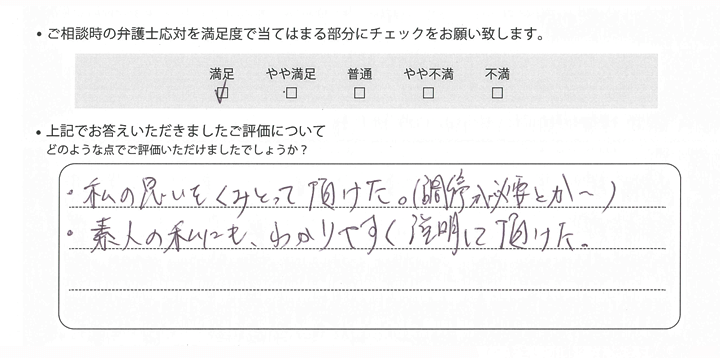 • ご相談時の弁護士応対を満足度で当てはまる部分にチェックをお願い致します。
満足 やや満足 普通 やや不満 不満
☑ □ □ □ □
• 上記でお答えいただきましたご評価について
どのような点でご評価いただけましたでしょうか？
・私の思いをくみとって頂けた。(調停が必要とか〜)
・素人の私にも、わかりやすく説明して頂けた。